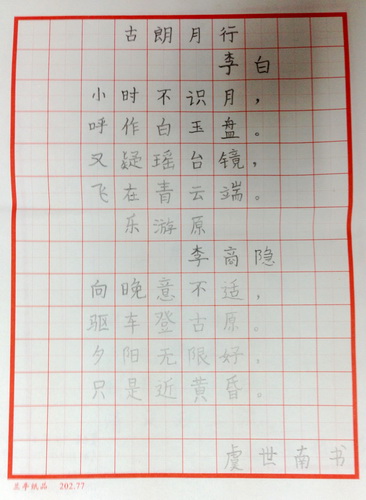 古朗月行
李白
小时不识月，
呼作白玉盘。
又疑瑶台镜，
飞在青云端。
乐游原
李高隐
向晚意不适，
驱车登古原。
夕阳无限好，
只是近黄昏。
虞世南书
202.77